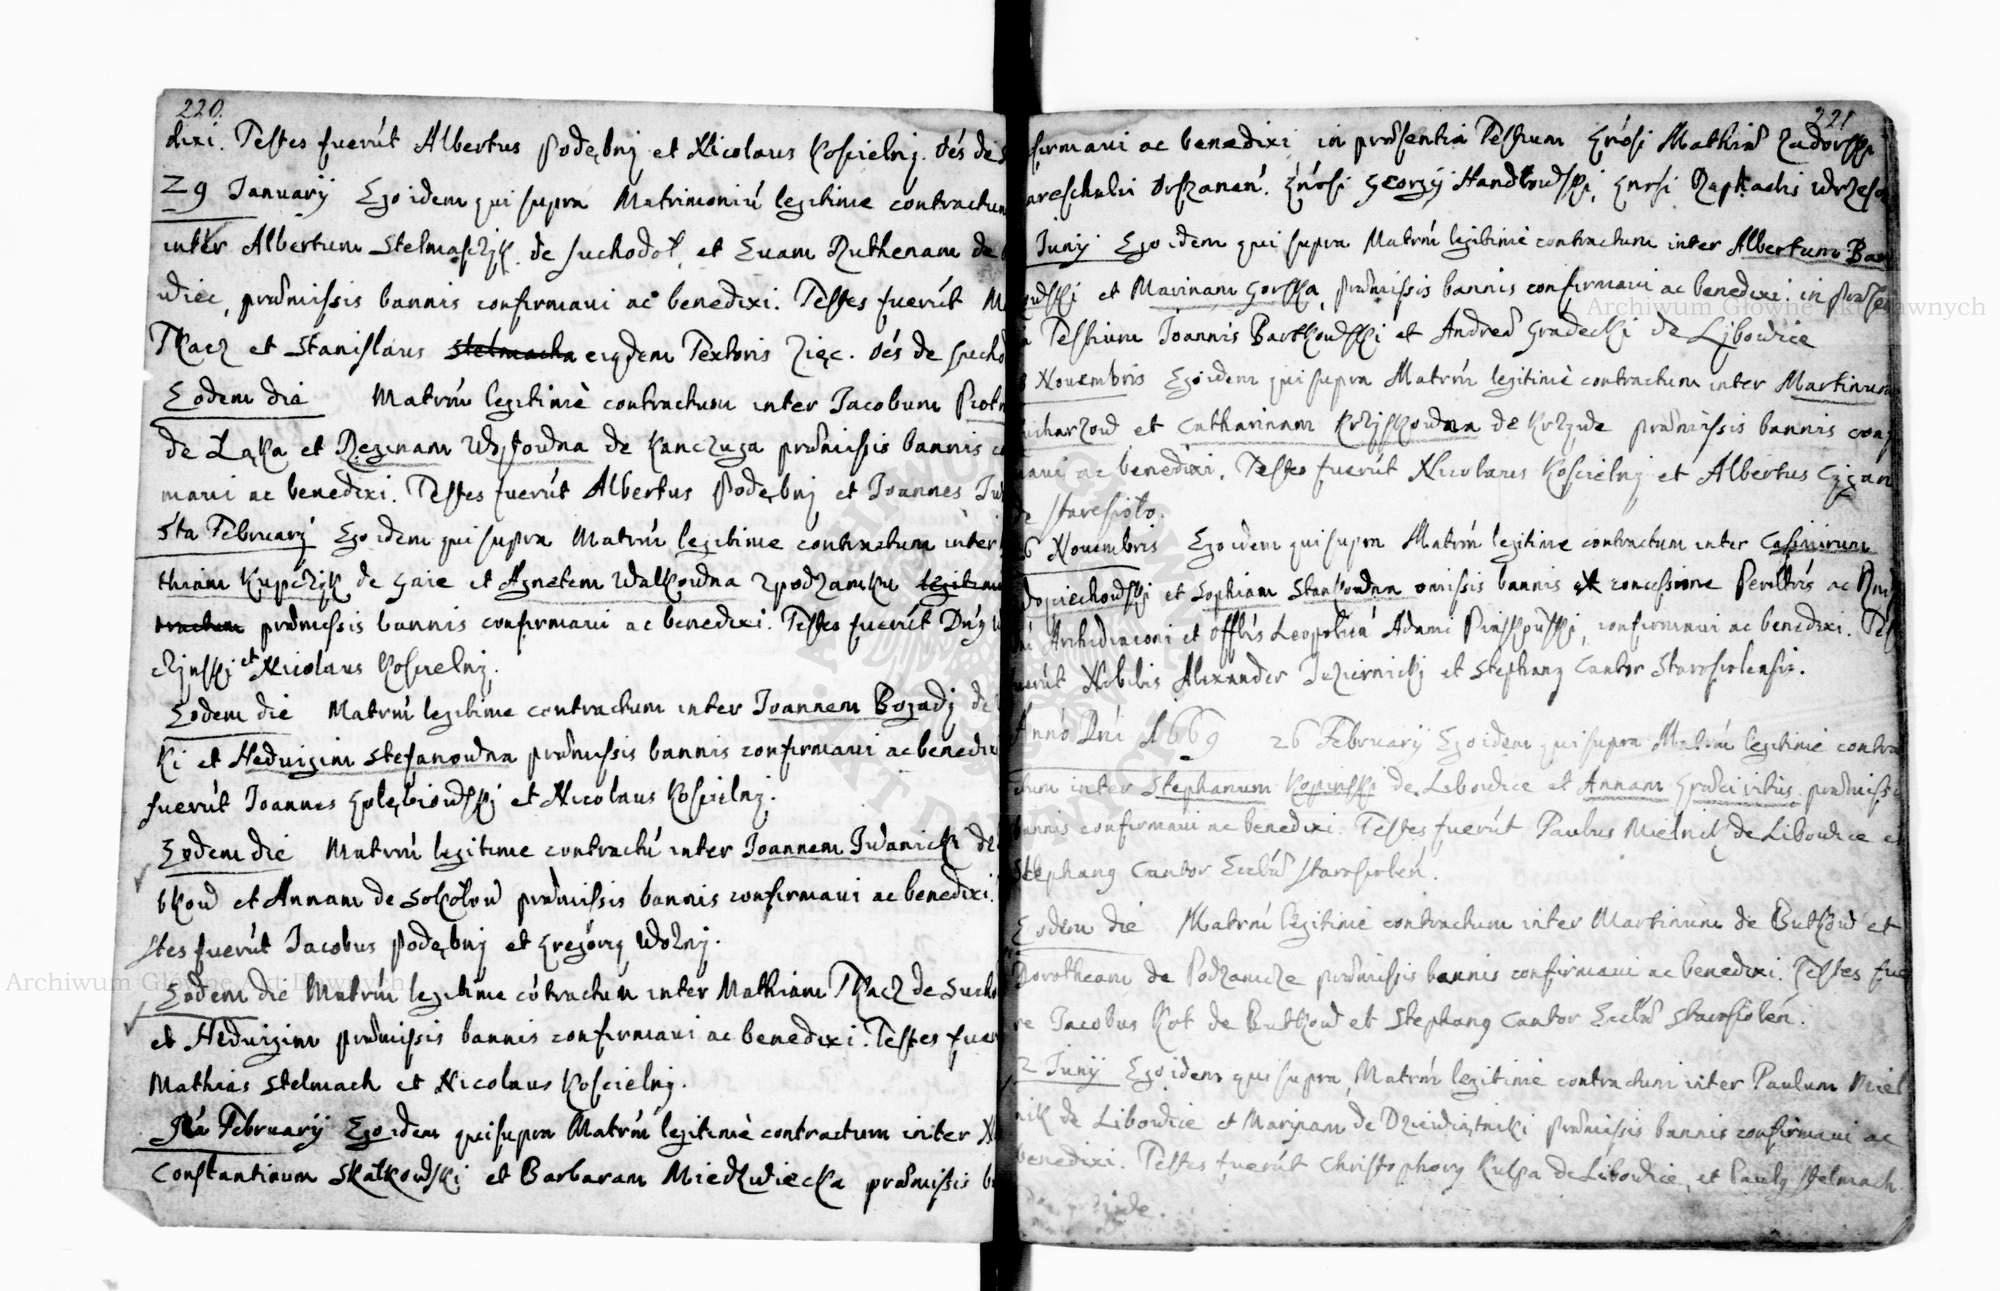 220.
dixi. Testes fuerút Albertus Podębny et Nicolaus Koscielny. oés de
29 Ianuarij Ego idem qui supra Matrimoniú legitime contractum
inter Albertum Stelmasczyk de suchodoł, et Euam Ruthenam de
wiec, praemissis bannis confirmaui ac benedixi. Testes fuerút M
Tkacz et Stanislaus Stelmacha eiqdem Textoris Zięc. oés de sucho
Eodem die Matrm legitimè contractum inter Iacobum Piotr
de Łąka et Reginam de Kanczuga praemissis bannis co
maui ac benedixi. Testes fuerút Albertus Podębny et Ioannes
5ta Februarij Ego idem qui supra Matrm legitime contractum inter
thiam Kupczyk de Gaie et Agnetem Walkowna zpodzamku legitime
tractum praemissis bannis confirmaui ac benedixi. Testes fuerút
czynski et Nicolaus Koscielny.
Eodem die Matrm legitime contractum inter Ioannem Bogady de
ki et Heduigim Stefanowna praemissis bannis confirmaui ac benedixi
fuerút Ioannes Gołębiowski et Nicolaus Koscielny.
Eodem die Matrm legitime contractú inter Ioannem Iwanicki de
tkow et Annam de Sokołow praemissis bannis confirmaui ac benedixi.
stes fuerút Iacobus Podębny et Gregorq Wozny.
Eodem die Matrm legitime cótractum inter Mathiam Tkacz de Sucho
et Heduigim praemissis bannis confirmaui ac benedixi. Testes fuer
Mathias Stelmach et Nicolaus Koscielny.
Februarij Ego idem qui supra Matrm legitimè contractum inter
Constantinum Skałkowski et Barbaram Miedzwiecka praemissis b
221
firmaui ac benedixi in praesentia Testium Gnósi Mathiae Zadorski
areschalci Orszanen. Gnósi Georgij Handłowski, Gnosi
Iunij Ego idem qui supra Matrm legitimè contractum inter Albertum Bar
owski et Marinam Gorska, praemissis bannis confirmaui ac benedixi in praese
a Testium Ioannis Bartkowski et Andreae Gradecki de Lybowice
Nouembris Ego idem qui supra Matrm legitimè contractum inter Martinum
de Krzywe praemissis bannis conf
maui ac benedixi. Testes fuerút Nicolaus Koscielny et Albertus Cygan
de staresioło.
6 Nouembris Ego idem qui supra Matrm legitime contractum inter Casimirum
Woyciechowski et Sophiam Stankowna omissis bannis ex concessione Perillris ac
Archidiaconi et Offlis Leopolien Adami Piaskowski, confirmaui ac benedixi. Tes
fuerút Nobilis Alexander Iezierniczkj et Stephanq Cantor Starosielensis.
Anno Dni 1669 26 Februarij Ego idem qui supra Matrm legitimè contra
ctum inter Stephanum Kopinski de Libowice et Annam praemissis
bannis confirmaui ac benedixi. Testes fuerút Paulus Mielnik de Libowice et
Stephanq Cantor Ecclae starosielen.
Eodem die Matrm legitimè contractum inter Martinum de Butkow et
Dorotheam de Podzamcze praemissis bannis confirmaui ac benedixi. Testes fue
re Iacobus Kot de Butkow et Stephanq Cantor Ecclae Starosielen.
2 Iunij Ego idem qui supra Matrm legitimè contractum inter Paulum Miel
nik de Libowice et Marynam de Dziewiątniki praemissis bannis confirmaui ac
benedixi. Testes fuerút Christophorq Kulpa de Libowice, et Paulq stelmach
Archiwum Główne Akt Dawnych
Archiwum Główne Akt Dawnych